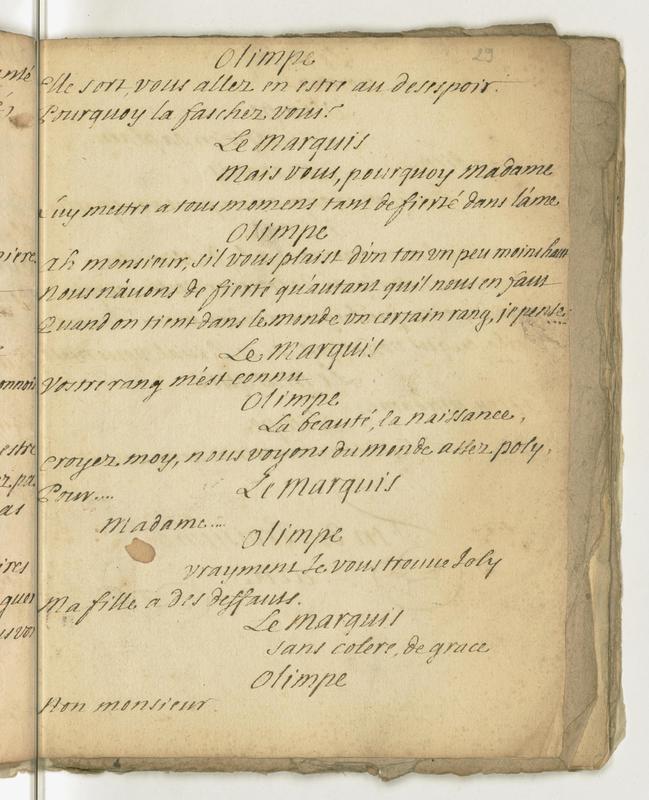 29
Olimpe
Elle sort vous allez en estre au desespoir.
Pourquoy la faschez vous?
Le Marquis
Mais vous, pourquoy Madame
Luy mestre a tous momens tant de fierté dans l'ame
Olimpe
Ah monsieur, s'il vous plaist d'vn ton vn peu moins haut
Nous n'auons de fierté qu'autant qu'il nous en faut
Quand on tient dans le monde vn certain rang, je pense
Le Marquis
Vostre rang m'est connu
Olimpe
La beauté, la naissance,
croyez moy, nous voyons du monde assez poly,
Pour....
Le Marquis
Madame....
Olimpe
vrayment Je vous trouue Joly
Ma fille a des deffauts.
Le Marquis
sans colere, de grace
Olimpe
Non monsieur.
nté
pierre
onnois
estre
ez pa
as
ires
quer